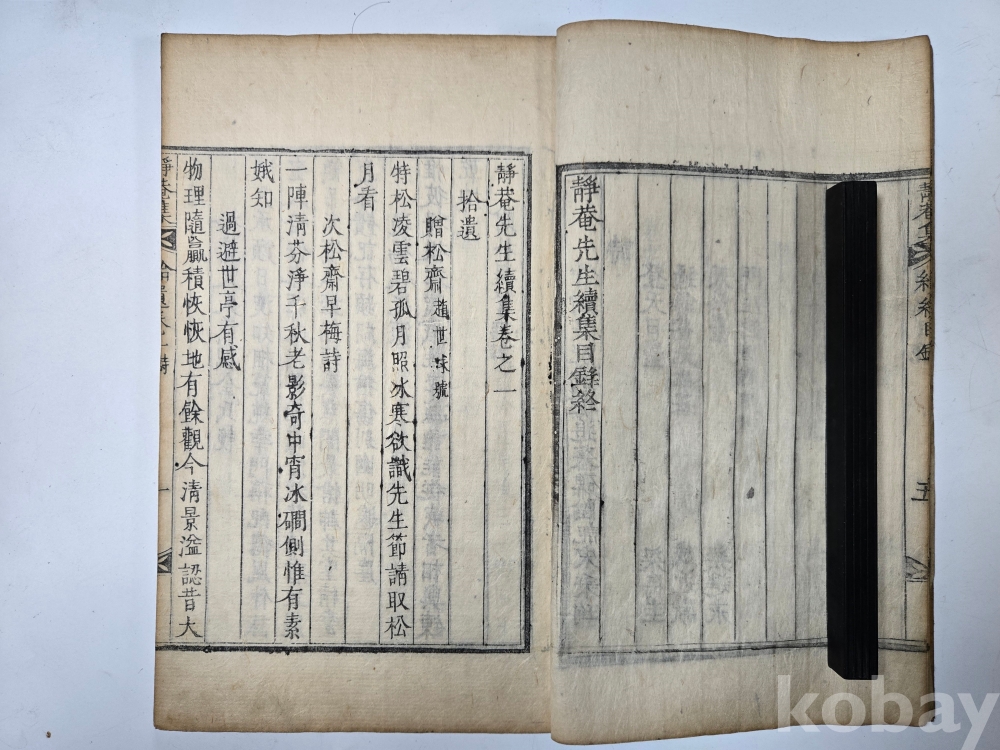 靜菴先生續集目錄終
五
靜菴先生續集卷之一
拾遺
贈松齋 趙世
號
特松凌雲碧孤月照冰寒欲識先生節請取松
月看
次松齋早梅詩
一陣清芬淨千秋老影奇中宵冰磵側惟有素
娥知
過避世亭有感
物理隨嬴積恢恢地有餘觀今清景溢認昔大
kobay